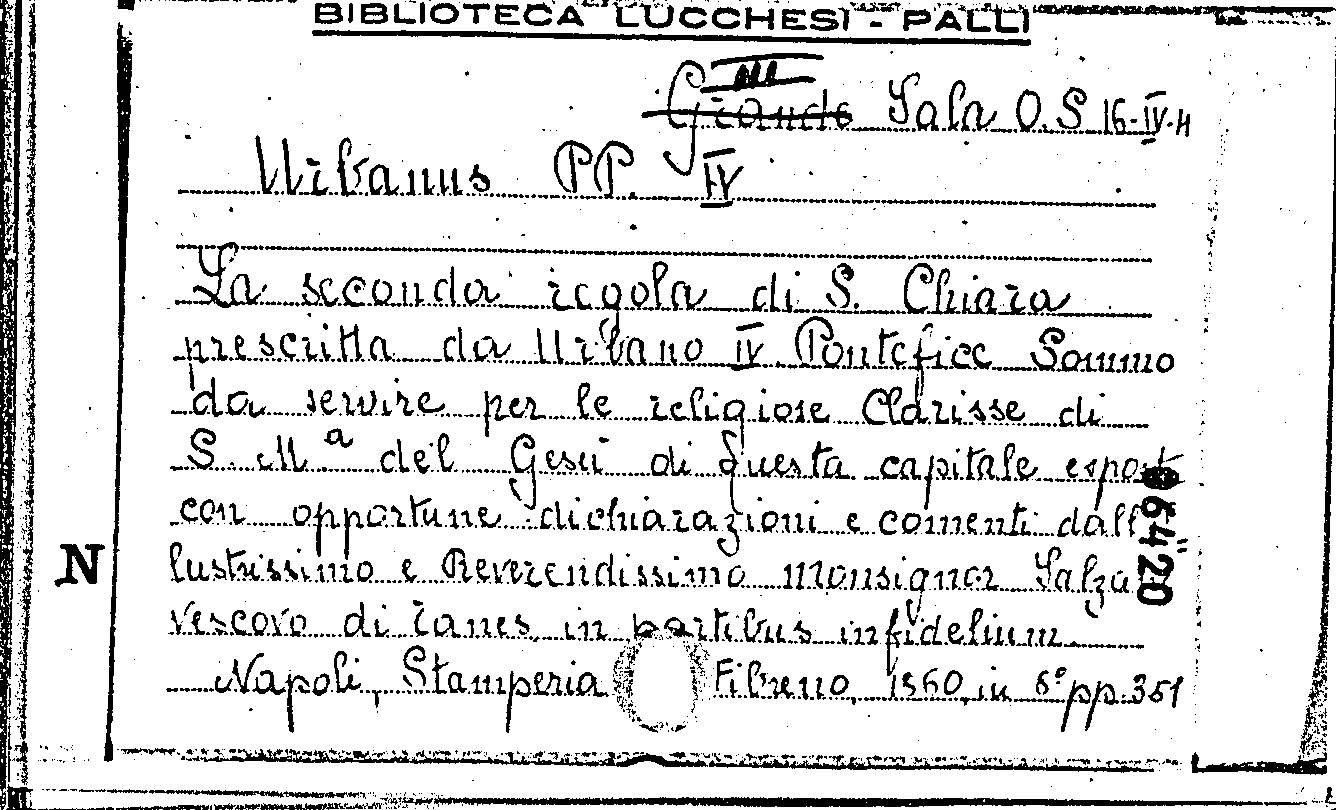 BIBLIOTECA LUCCHESI - PALLI
III
Grande Sala O.S 16-IV-4
Urbanus PP. IV
La seconda regola di S. Chiara
prescritta da Urbano IV Pontefice Sommo
da servire per le religiose Clarisse di
S. M.a del Gesù di questa capitale espost
con opportune dichiarazioni e comenti dall'
lustrissimo e Reverendissimo Monsignor Salza
vescovo di Tanes in partibus infidelium
Napoli, Stamperia Fibreno, 1860, in 8° pp. 351
N
06420